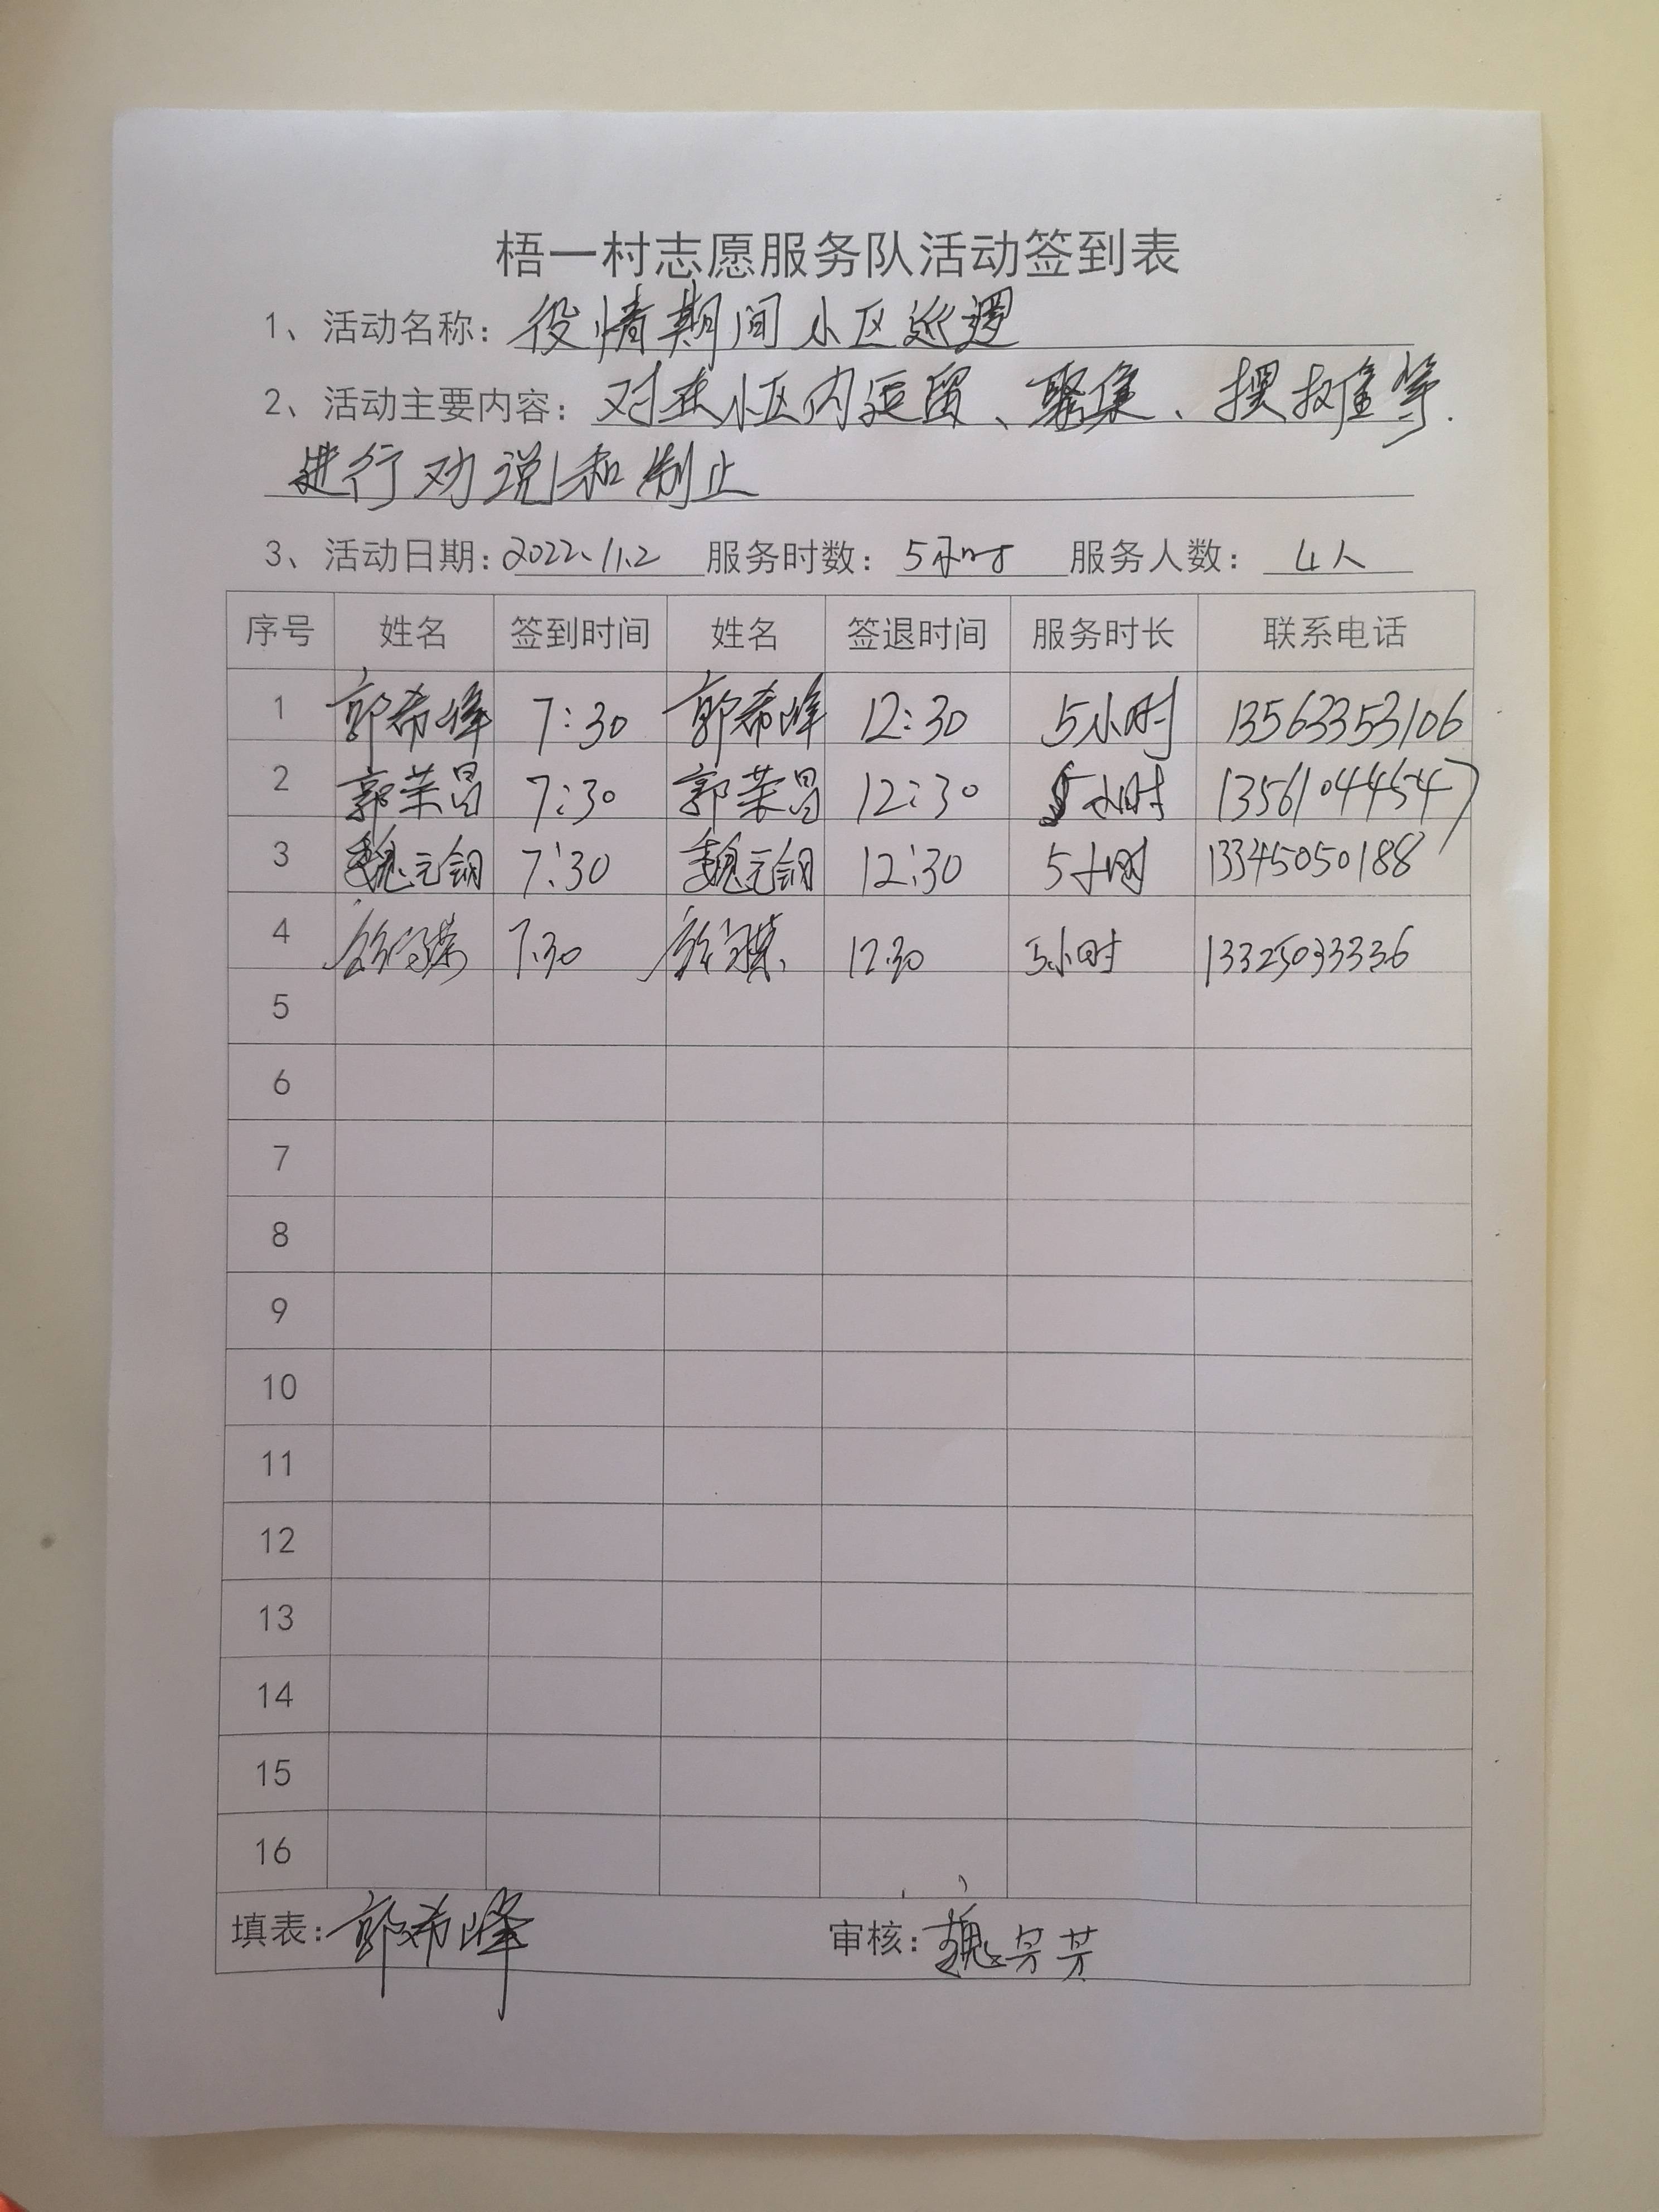 梧一村志愿服务队活动签到表
1、活动名称：役情期间小区巡逻
2、活动主要内容：对在小区内逗留、聚集、摆摊等
进行劝说和制止
3、活动日期：2022.11.2 服务时数：5小时 服务人数：4人
序号 姓名 签到时间 姓名 签退时间 服务时长 联系电话
1 郭希峰 7:30 郭希峰 12:30 5小时 13563353106
2 郭荣昌 7:30 郭荣昌 12:30 5小时 13561044547
3 魏元钢 7:30 魏元钢 12:30 5小时 13345050188
4 7:30 12:30 5小时 13325033336
5
6
7
8
9
10
11
12
13
14
15
16
填表：郭希峰 审核：魏芳